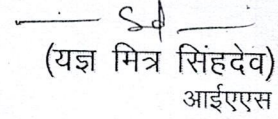 Sd
(यज्ञ मित्र सिंहदेव)
आईएएस